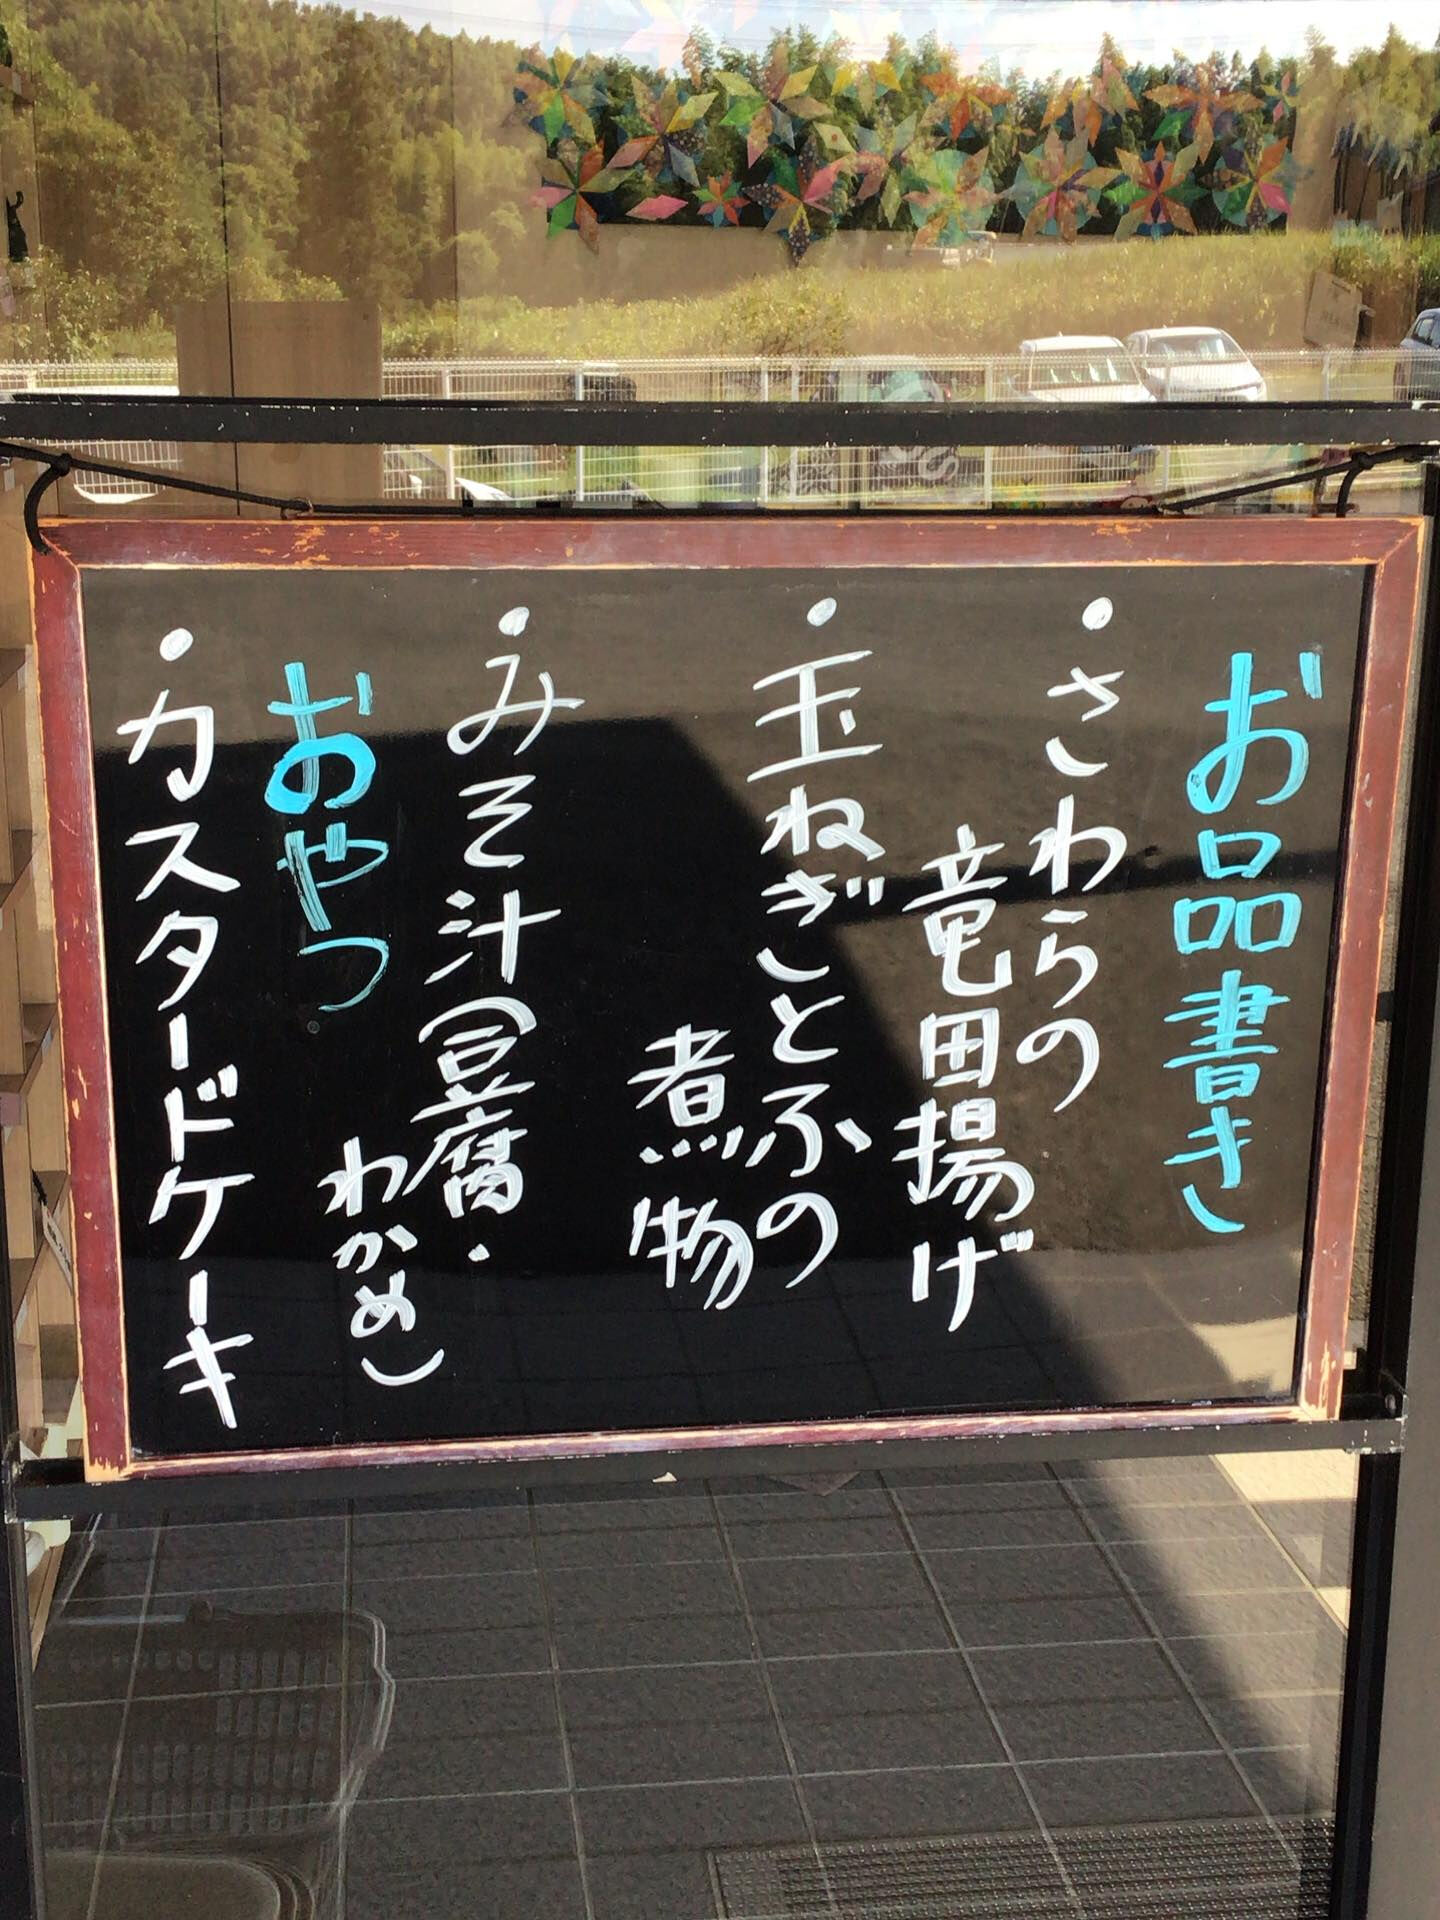 お品書き
・さわらの
竜田揚げ
・玉ねぎとふの
煮物
・みそ汁(豆腐・
わかめ)
おやつ
・カスタードケーキ